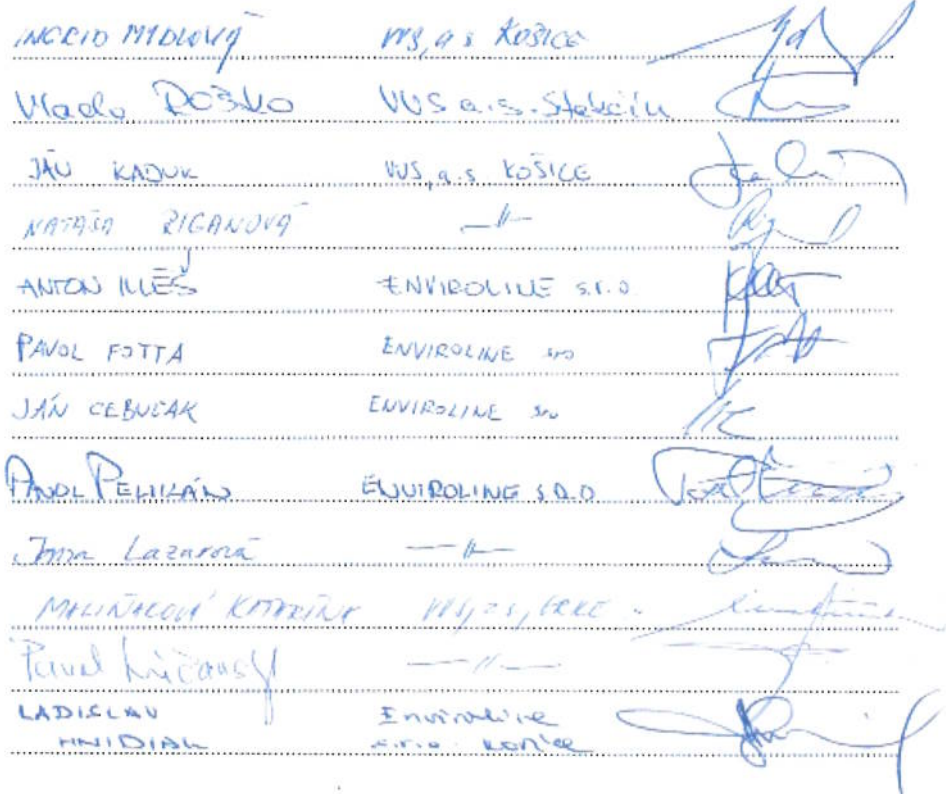 INGRID MYDLOVÁ VVS, a s KOŠICE
Vlado ROŠKO VVS a.s. Stakčín
JÁN KADUK VVS, a.s KOŠICE
NATAŠA ZIGANOVÁ —//—
ANTON ILLÉŠ ENVIROLINE s.r.o
PAVOL FOTTA ENVIROLINE sro
JÁN CEBUĽAK ENVIROLINE sro
PAVOL PELIKÁN ENVIROLINE S.R.O
Lazarová —//—
MALIŇAKOVÁ KATARÍNA
Pavel —//—
LADISLAV Enviroline
HNIDIAK s.r.o. Košice